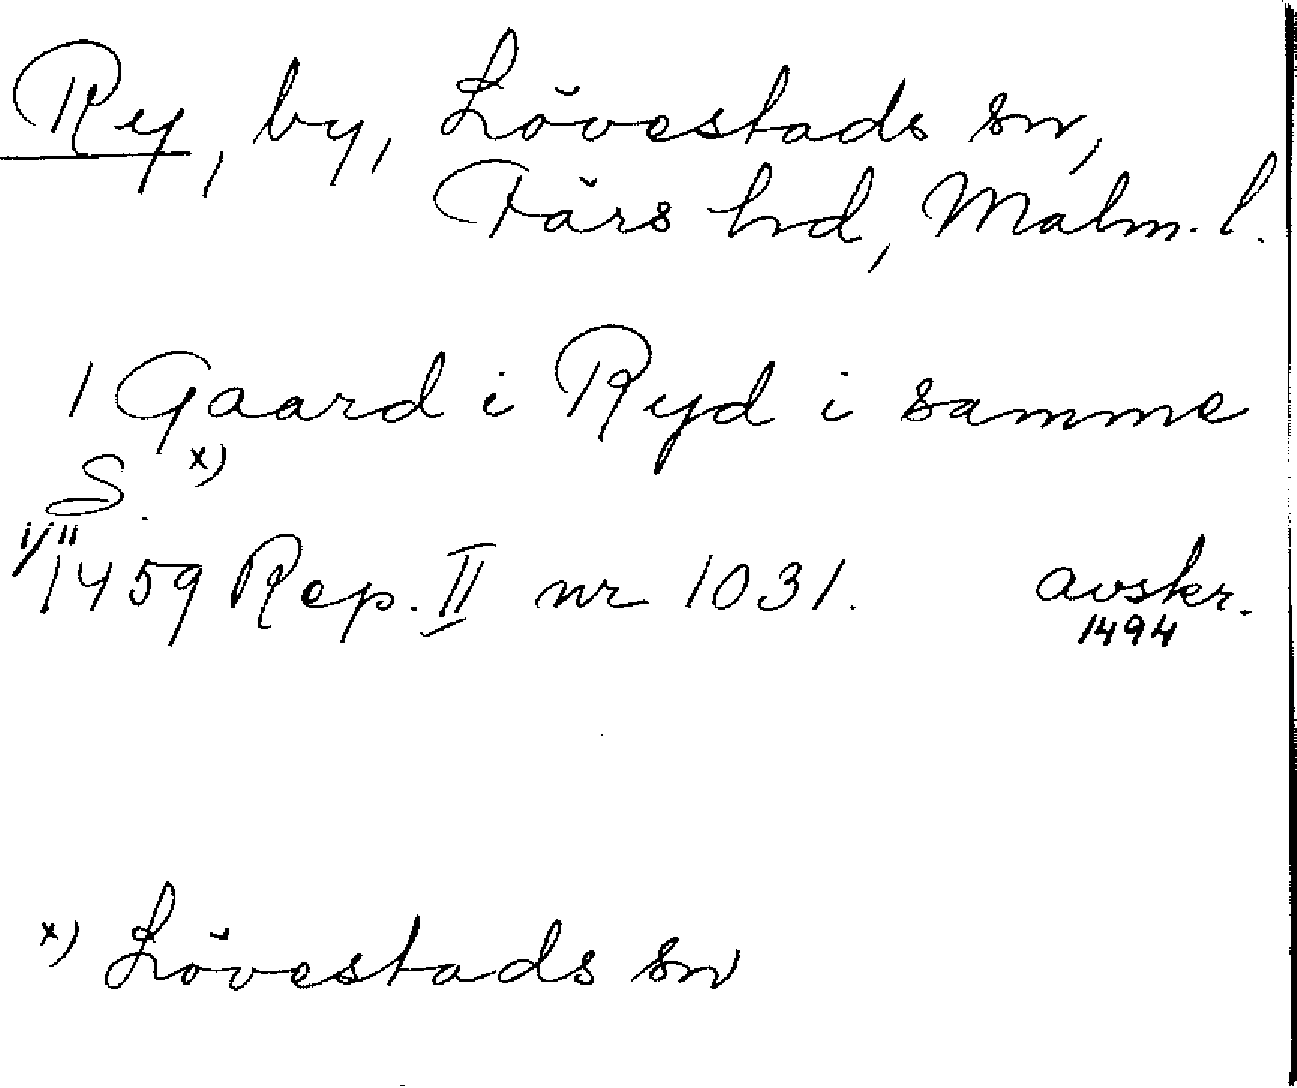 Ry, by, Lövestads sn,
Färs hd, Malm. l.
1 Gaard i Ryd i samme
S. x)
1/11
1459 Rep. II nr 1031. avskr.
1494
x) Lövestads sn